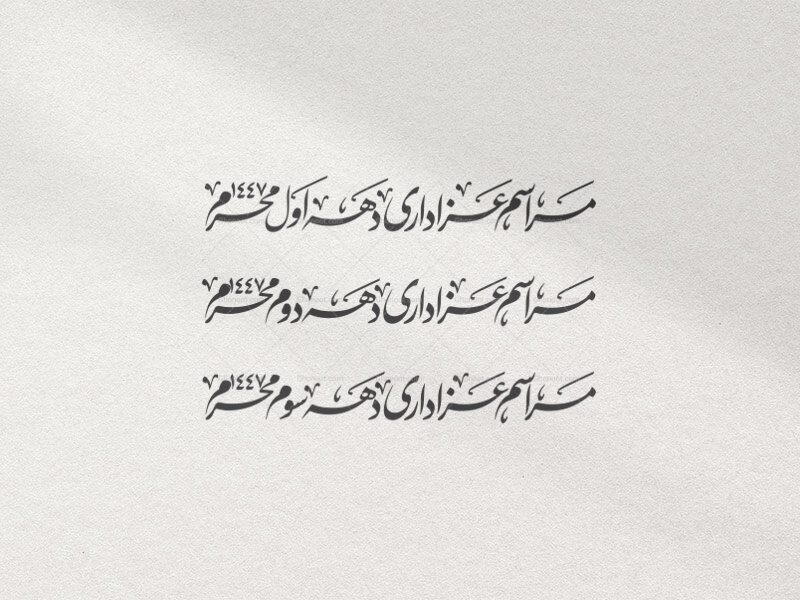 مراسم عزاداری دهه اول محرم ١٤٤٧
مراسم عزاداری دهه دوم محرم ١٤٤٧
مراسم عزاداری دهه سوم محرم ١٤٤٧